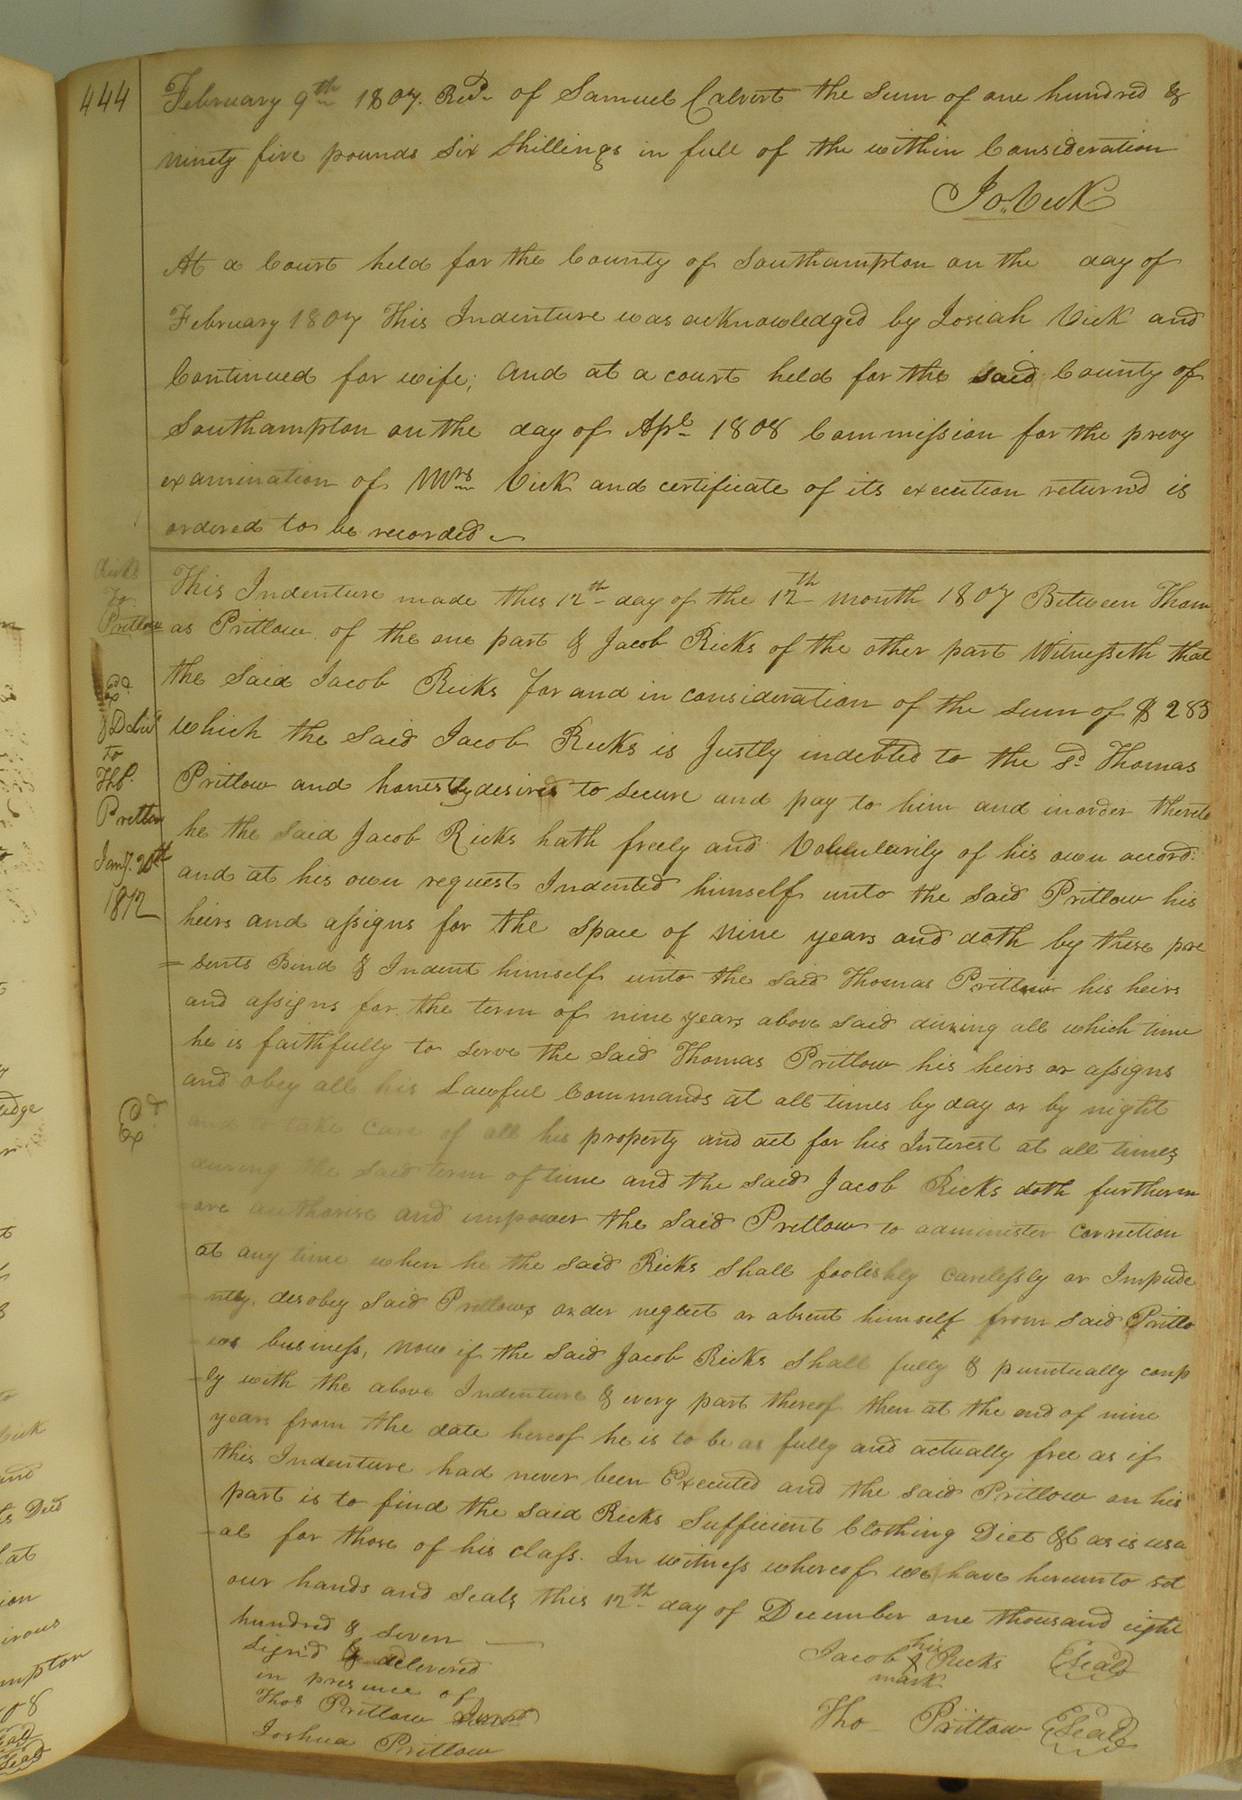 444
February 9th 1807. Recd. of Samuel Calvert the sum of one hundred &
ninety five pounds six shillings in full of the within Consideration
Jo. Vick
At a Court held for the County of Southampton on the day of
February 1807 This Indenture was acknowledged by Josiah Vick and
Continued for wife; And at a court held for the said County of
Southampton on the day of Apl 1808 Commission for the prevy
examination of Mrs Vick and certificate of its execution returnd is
ordered to be recorded
Ricks
To
Pritlow
This Indenture made this 12th day of the 12th month 1807 Between Thom
as Pritlow of the one part & Jacob Ricks of the other part Witnesseth that
the said Jacob Ricks for and in consideration of the sum of $283
which the said Jacob Ricks is Justly indebted to the sd. Thomas
Pritlow and honestly desires to secure and pay to him and inorder thereto
he the said Jacob Ricks hath freely and Voluntarily of his own accord
and at his own request Indented himself unto the said Pritlow his
heirs and assigns for the space of nine years and doth by these pre
=sents Bind & Indent himself unto the said Thomas Pritlow his heirs
and assigns for the term of nine years above said during all which time
he is faithfully to serve the said Thomas Pritlow his heirs or assigns
and obey all his Lawful Commands at all times by day or by night
and to take care of all his property and act for his Interest at all times
during the said term of time and the said Jacob Ricks doth furtherm
=ore authorise and impower the said Pritlow to administer correction
at any time when he the said Ricks shall foolishly carelessly or Impude
=ntly. desobey said Pritlows order neglect or absent himself from said Pritlo
=ws business, now if the said Jacob Ricks shall fully & punctually comp
=ly with the above Indenture & every part thereof then at the end of nine
years from the date hereof he is to be as fully and actually free as if
this Indenture had never been Executed and the said Pritlow on his
part is to find the said Ricks Sufficient Clothing Diet &c as is usu
=al for those of his class. In witness whereof we have hereunto set
our hands and seals this 12th day of December one thousand eight
hundred & seven
Exd.
& Delivd
to
Ths.
Pretlow
Jany. 20th
1812
Exd.
Signd & delivered
in presence of
Thos Pritlow Junr
Joshua Pritlow
Jacob his Ricks Seal
mark
Tho Pritlow Seal